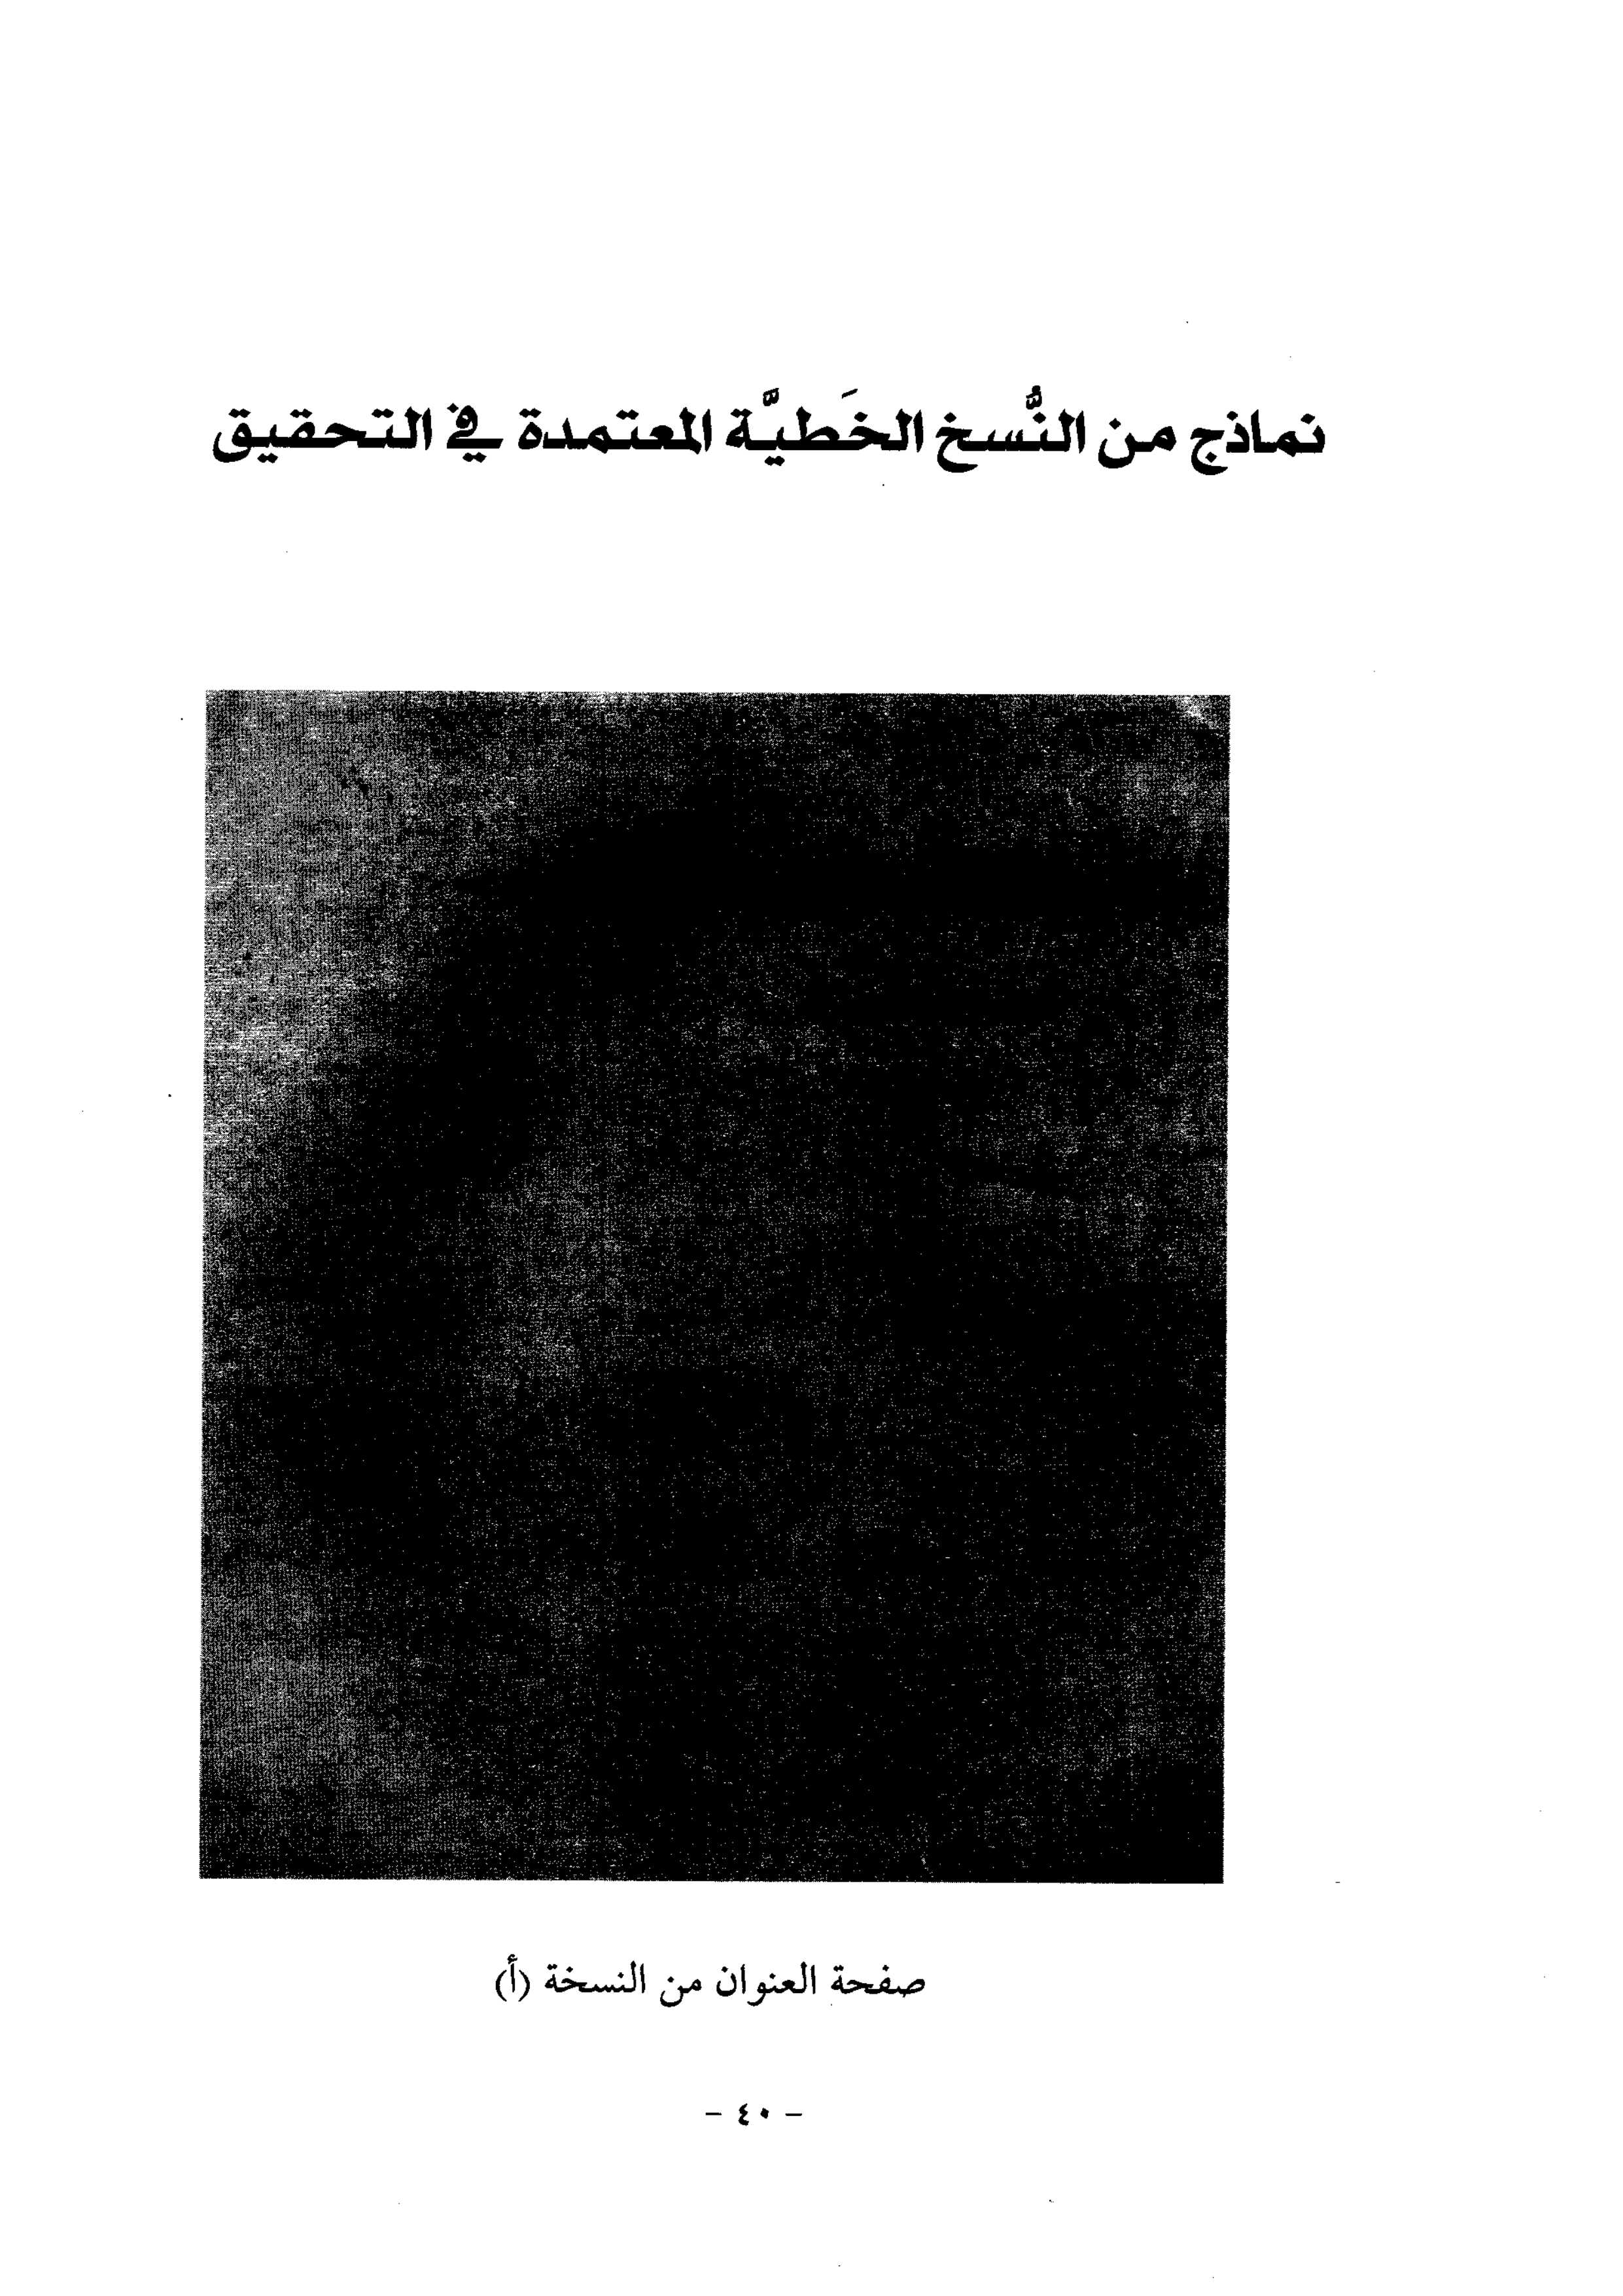 نماذج من النُّسخ الخَطيَّة المعتمدة في التحقيق
صفحة العنوان من النسخة (أ)
- ٤٠ -